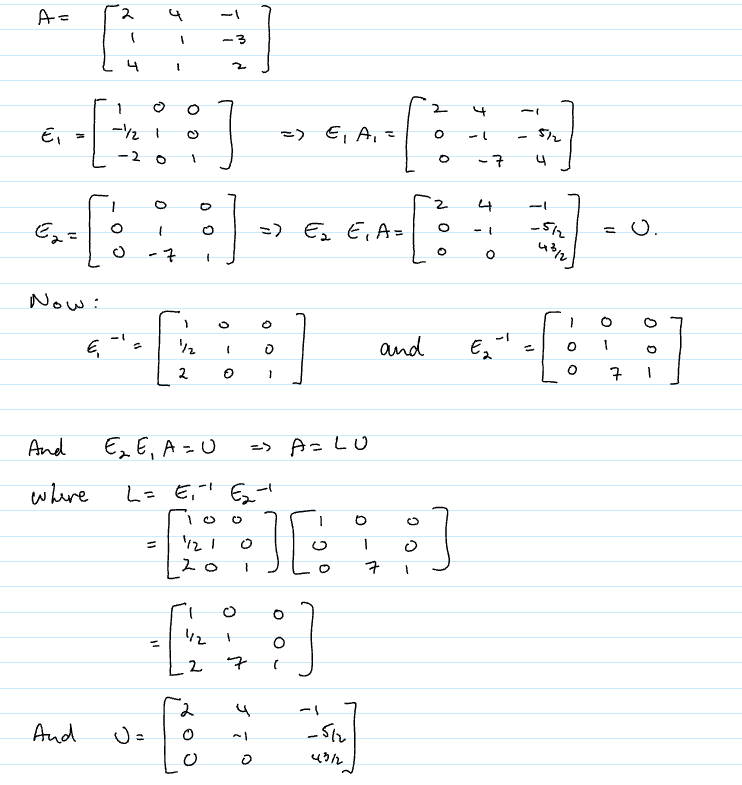 A = [2 4 -1
1 1 -3
4 1 2]
E₁ = [1 0 0
-1/2 1 0
-2 0 1] => E₁ A₁ = [2 4 -1
0 -1 -5/2
0 -7 4]
E₂ = [1 0 0
0 1 0
0 -7 1] => E₂ E₁ A = [2 4 -1
0 -1 -5/2
0 0 43/2] = U.
Now:
E₁⁻¹ = [1 0 0
1/2 1 0
2 0 1] and E₂⁻¹ = [1 0 0
0 1 0
0 7 1]
And E₂ E₁ A = U => A = L U
where L = E₁⁻¹ E₂⁻¹
= [1 0 0
1/2 1 0
2 0 1] [1 0 0
0 1 0
0 7 1]
= [1 0 0
1/2 1 0
2 7 1]
And U = [2 4 -1
0 -1 -5/2
0 0 43/2]